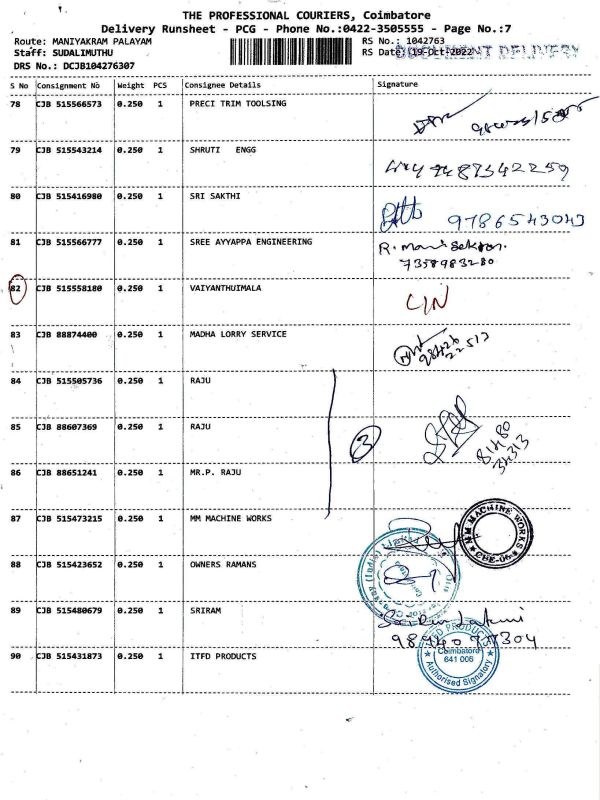 THE PROFESSIONAL COURIERS, Coimbatore
Delivery Runsheet - PCG - Phone No.:0422-3505555 - Page No.:7
Route: MANIYAKRAM PALAYAM
RS No.: 1042763
Staff: SUDALIMUTHU
RS Date: 19-Oct-2022
DOCUMENT DELIVERY
DRS No.: DCJB104276307
S No Consignment No Weight PCS Consignee Details Signature
78 CJB 515566573 0.250 1 PRECI TRIM TOOLSING
79 CJB 515543214 0.250 1 SHRUTI ENGG
9487342259
80 CJB 515416980 0.250 1 SRI SAKTHI
9786543043
81 CJB 515566777 0.250 1 SREE AYYAPPA ENGINEERING
7358983280
82 CJB 515558180 0.250 1 VAIYANTHUIMALA
83 CJB 88874400 0.250 1 MADHA LORRY SERVICE
98426
22513
84 CJB 515505736 0.250 1 RAJU
85 CJB 88607369 0.250 1 RAJU
3
86 CJB 88651241 0.250 1 MR.P. RAJU
87 CJB 515473215 0.250 1 MM MACHINE WORKS
MM MACHINE WORKS
CBE-06
88 CJB 515423652 0.250 1 OWNERS RAMANS
89 CJB 515480679 0.250 1 SRIRAM
90 CJB 515431873 0.250 1 ITFD PRODUCTS
Coimbatore
641 006
Authorised Signatory